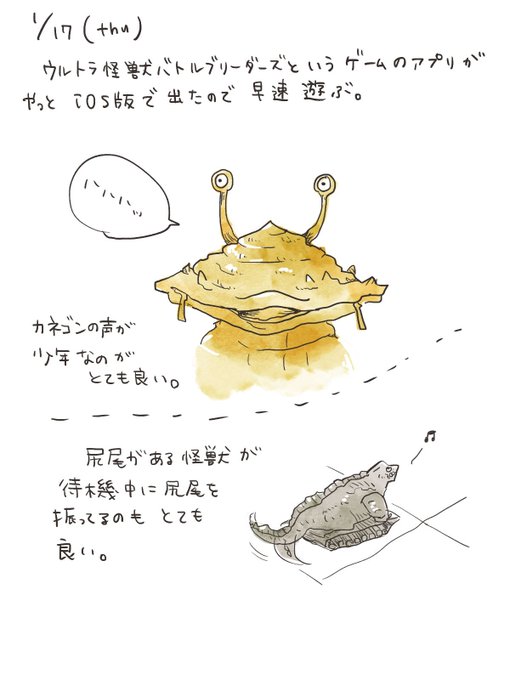 1/17(thu)
ウルトラ怪獣バトルブリーダーズというゲームのアプリが
やっとiOS版で出たので早速遊ぶ。
ハハハハッ
カネゴンの声が
少年なのが
とても良い。
尻尾がある怪獣が
待機中に尻尾を
振ってるのもとても
良い。